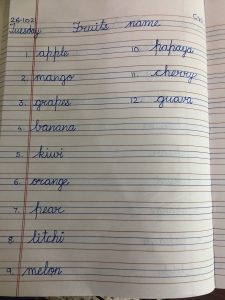 26-10-2
Tuesday
Fruits name
1. apple
2. mango
3. grapes
4. banana
5. kiwi
6. orange
7. pear
8. litchi
9. melon
10. papaya
11. cherry
12. guava